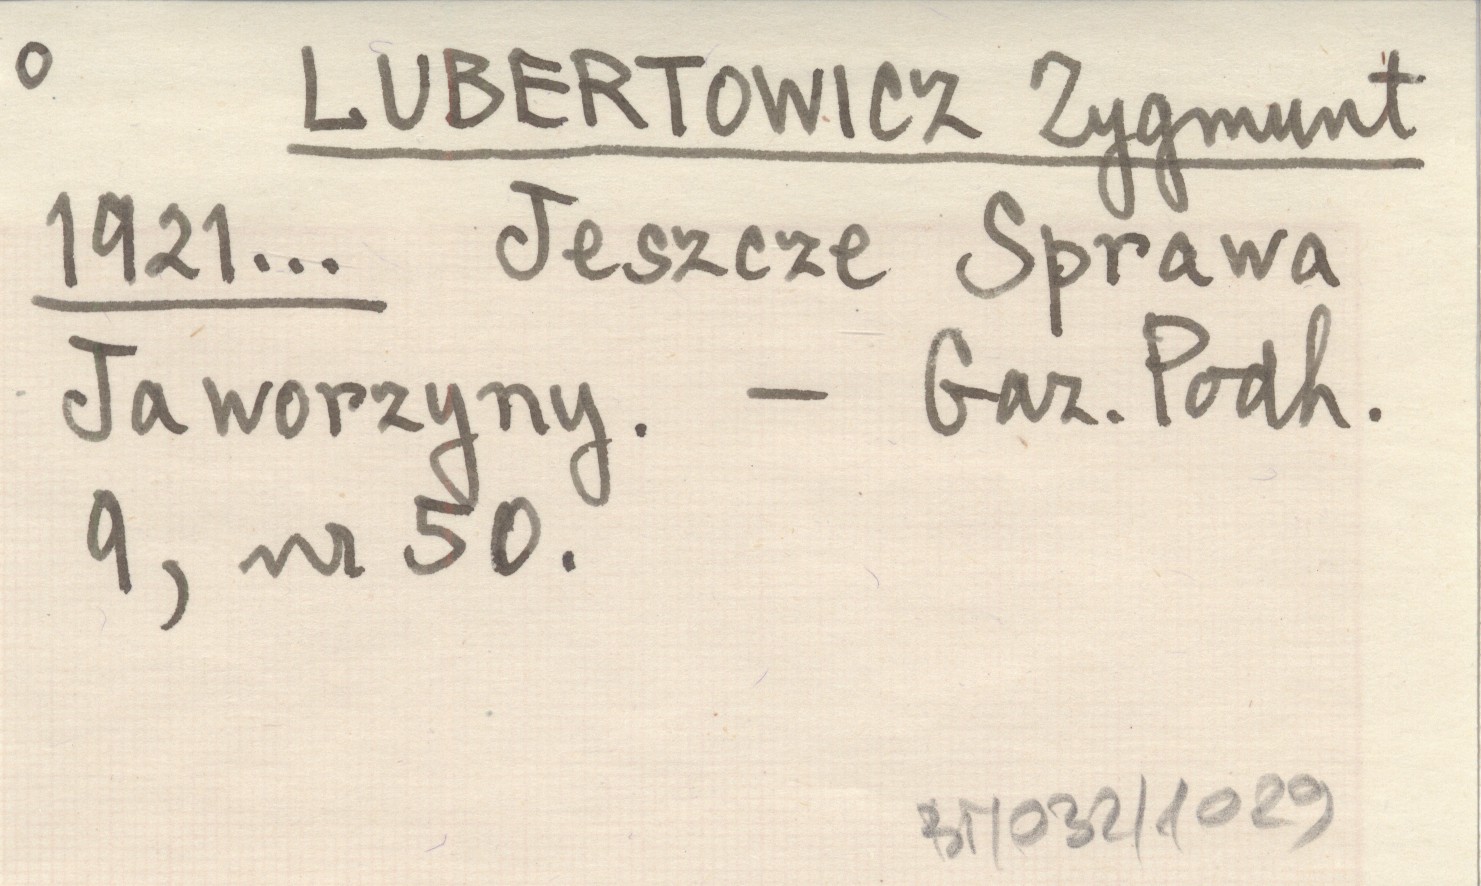 o LUBERTOWICZ Zygmunt
1921... Jeszcze Sprawa
Jaworzyny. — Gaz. Podh.
9, nr 50.
BT/032/1029